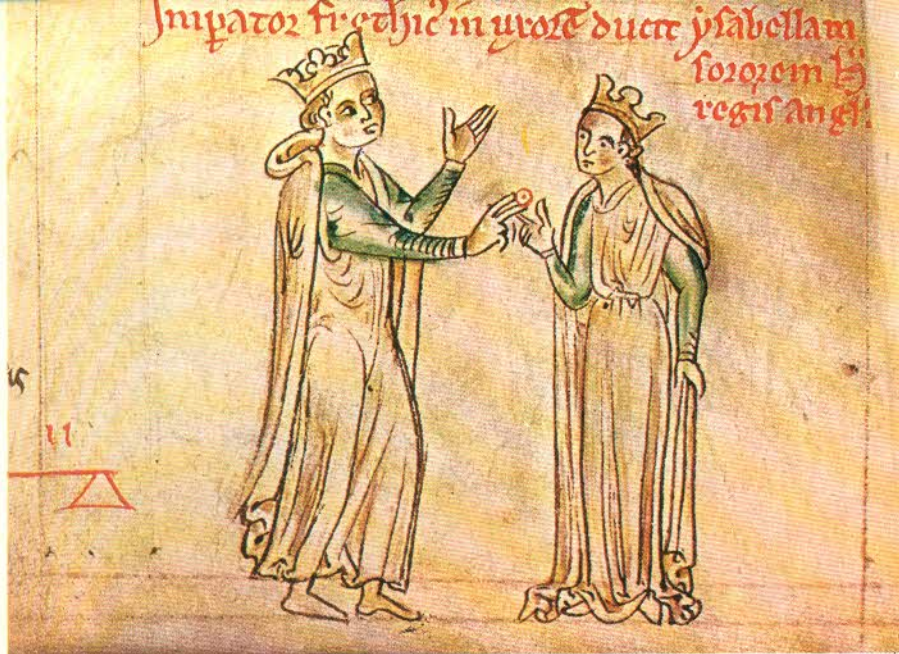 Imꝑator frethic᷒ in uxorē ducit ẏsabellam
sororem H̄
regis angl᷒.
11